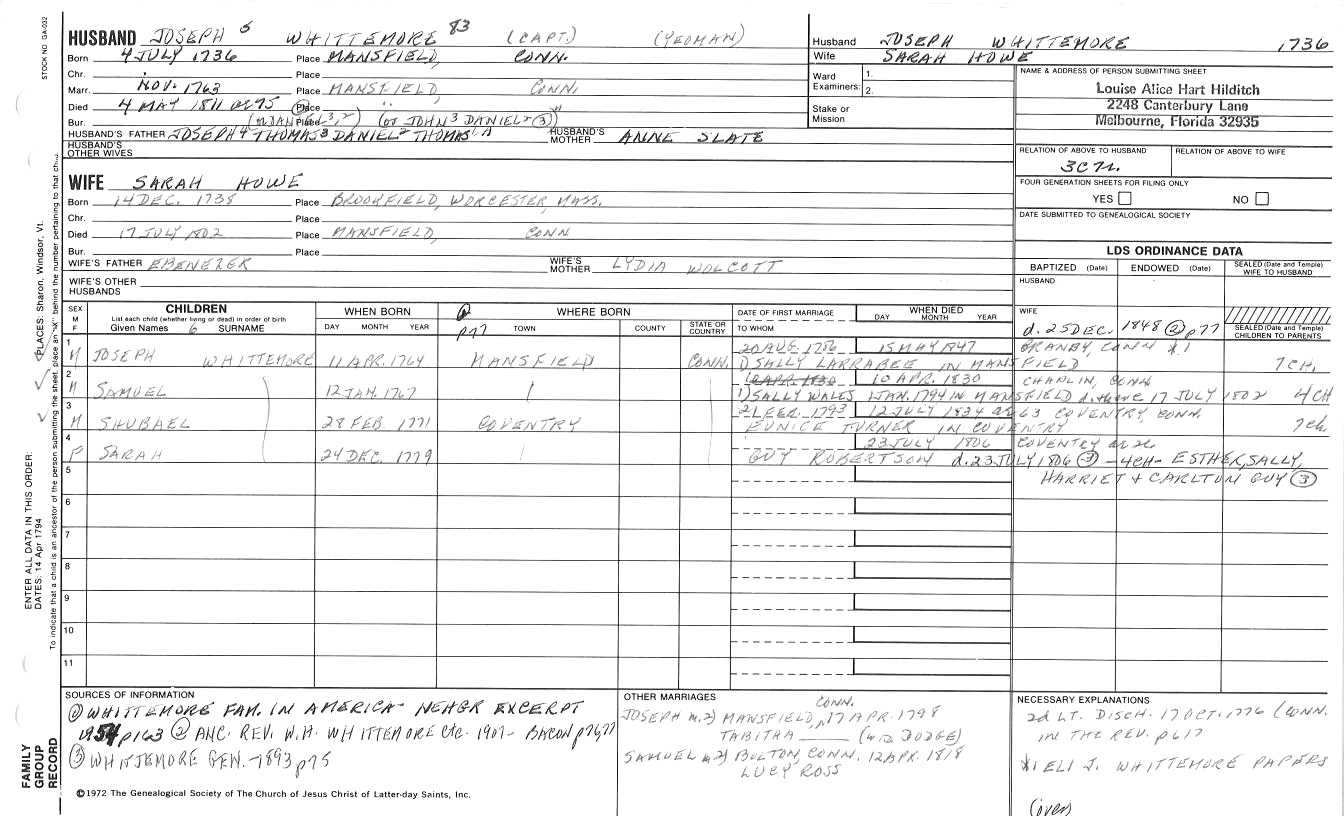 STOCK NO. GA-032
HUSBAND JOSEPH 5 WHITTEMORE 83 (CAPT.) (YEOMAN)
Born 4 JULY 1736 Place MANSFIELD, CONN.
Chr. Place
Marr. NOV. 1763 Place MANSFIELD, CONN.
Died 4 MAY 1811 ae 75 Place " "
Bur. Place (or DANIEL 3, 2) (or JOHN 3 DANIEL 2 (3))
HUSBAND'S FATHER JOSEPH 4 THOMAS 3 DANIEL 2 THOMAS 1 HUSBAND'S MOTHER ANNE SLATE
HUSBAND'S OTHER WIVES
Husband JOSEPH WHITTEMORE 1736
Wife SARAH HOWE
Ward 1.
Examiners: 2.
Stake or Mission
NAME & ADDRESS OF PERSON SUBMITTING SHEET
Louise Alice Hart Hilditch
2248 Canterbury Lane
Melbourne, Florida 32935
RELATION OF ABOVE TO HUSBAND RELATION OF ABOVE TO WIFE
3C7r.
FOUR GENERATION SHEETS FOR FILING ONLY
YES NO
DATE SUBMITTED TO GENEALOGICAL SOCIETY
WIFE SARAH HOWE
Born 14 DEC. 1738 Place BROOKFIELD, WORCESTER, MASS.
Chr. Place
Died 17 JULY 1802 Place MANSFIELD, CONN
Bur. Place
WIFE'S FATHER EBENEZER WIFE'S MOTHER LYDIA WOLCOTT
WIFE'S OTHER HUSBANDS
LDS ORDINANCE DATA
BAPTIZED (Date) ENDOWED (Date) SEALED (Date and Temple) WIFE TO HUSBAND
HUSBAND
WIFE
SEALED (Date and Temple) CHILDREN TO PARENTS
SEX M F CHILDREN WHEN BORN WHERE BORN DATE OF FIRST MARRIAGE WHEN DIED
List each child (whether living or dead) in order of birth
Given Names 6 SURNAME DAY MONTH YEAR p77 TOWN COUNTY STATE OR COUNTRY TO WHOM DAY MONTH YEAR
d. 25 DEC. 1848 (2) p77
1 20 AUG. 1786 15 MAY 1847 GRANBY, CONN *1
M JOSEPH WHITTEMORE 11 APR. 1764 MANSFIELD CONN. 1) SALLY LARRABEE IN MANSFIELD 7 CH.
2 12 APR. 1830 10 APR. 1830 CHAPLIN, CONN
M SAMUEL 12 JAN. 1767 1) SALLY WALES 1 JAN. 1794 IN MANSFIELD d. there 17 JULY 1802 4 CH
3 21 FEB. 1793 12 JULY 1834 ae 63 COVENTRY, CONN.
M SHUBAEL 28 FEB 1771 COVENTRY EUNICE TURNER IN COVENTRY 7 ch.
4 23 JULY 1806 COVENTRY ae 26
F SARAH 24 DEC. 1779 GUY ROBERTSON d. 23 JULY 1806 (3) - 4CH - ESTHER, SALLY,
5 HARRIET + CARLTON GUY (3)
6
7
8
9
10
11
SOURCES OF INFORMATION
(1) WHITTEMORE FAM. IN AMERICA - NEHGR EXCERPT
1954 p163 (2) ANC. REV. W.H. WHITTEMORE etc. 1907 - BACON p76,77
(3) WHITTEMORE GEN. - 1893 p75
©1972 The Genealogical Society of The Church of Jesus Christ of Latter-day Saints, Inc.
OTHER MARRIAGES
CONN.
JOSEPH m. 2) MANSFIELD, 17 APR. 1798
TABITHA (WID DODGE)
SAMUEL m 2) BOLTON, CONN. 12 APR. 1818
LUCY ROSS
NECESSARY EXPLANATIONS
2d LT. DISCH. 17 OCT. 1776 (CONN.
IN THE REV. p617
*1 ELI J. WHITTEMORE PAPERS
(over)
ENTER ALL DATA IN THIS ORDER:
DATES: 14 Apr 1794
PLACES: Sharon, Windsor, Vt.
To indicate that a child is an ancestor of the person submitting the sheet, place an "X" behind the number pertaining to that child.
FAMILY GROUP RECORD